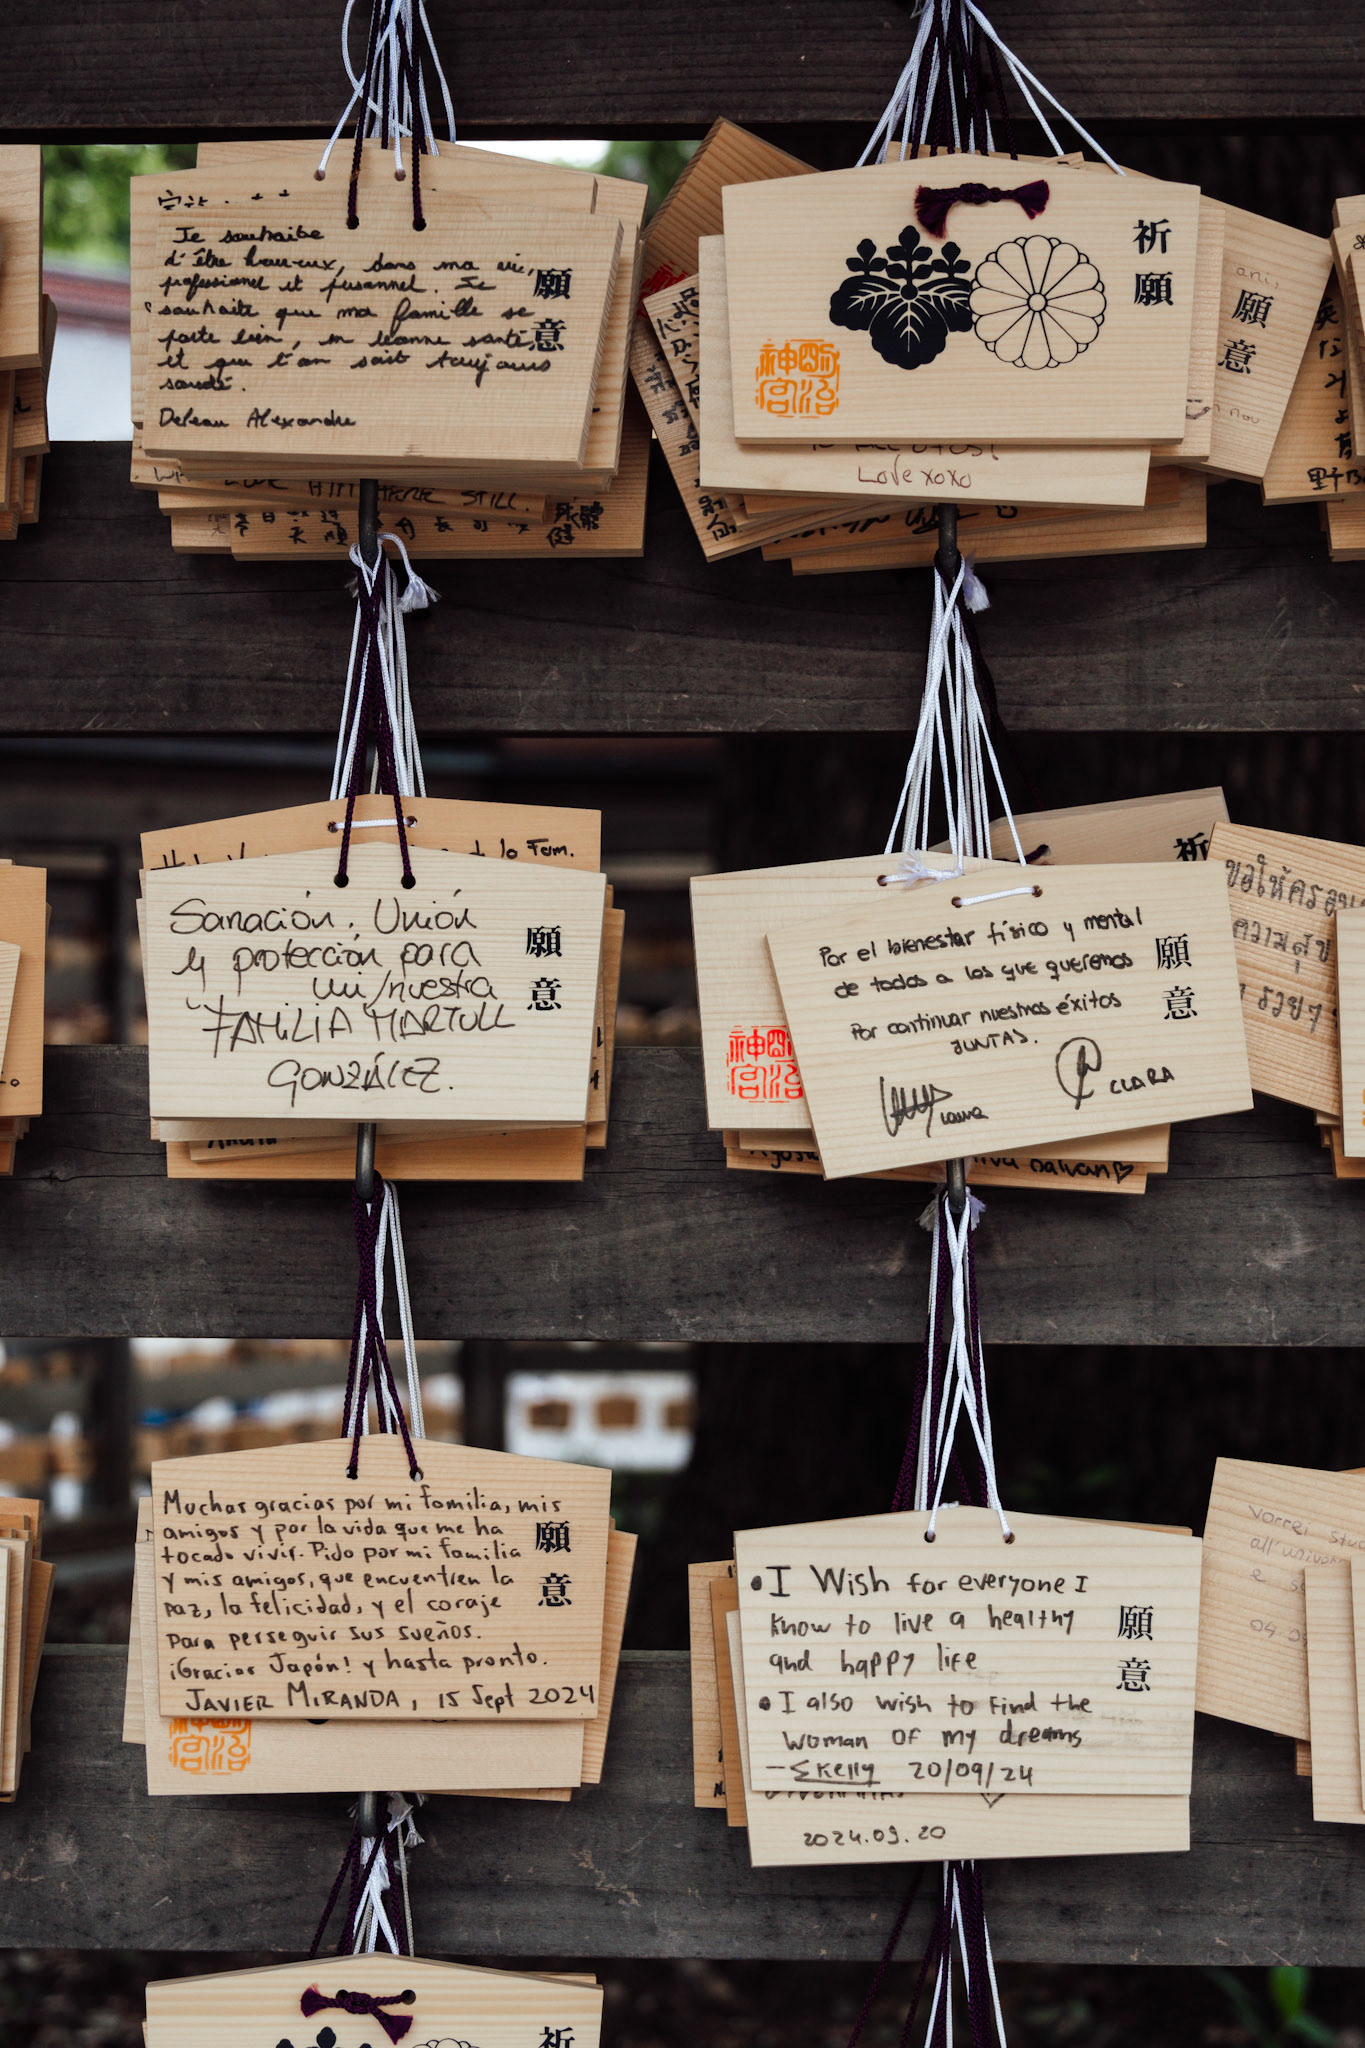 Je souhaite
d'être heureux, dans ma vie,
professionel et personnel. Je
souhaite que ma famille se
porte bien, en bonne santé,
et que l'on soit toujours
soudé.
Deleau Alexandre
願意
STILL.
祈願
Love xoxo
願意
lo Fam.
Sanación, Unión
y protección para
mi/nuestra
FAMILIA MARTULL
GONZÁLEZ.
願意
祈
Por el bienestar físico y mental
de todos a los que queremos
Por continuar nuestros éxitos
JUNTAS.
CLARA
願意
ความสุข
รวยๆ
Muchas gracias por mi familia, mis
amigos y por la vida que me ha
tocado vivir. Pido por mi familia
y mis amigos, que encuentren la
paz, la felicidad, y el coraje
para perseguir sus sueños.
¡Gracias Japón! y hasta pronto.
JAVIER MIRANDA, 15 Sept 2024
願意
• I Wish for everyone I
know to live a healthy
and happy life
• I also wish to find the
woman of my dreams
20/09/24
願意
2024.09.20
vorrei
all'
e
祈